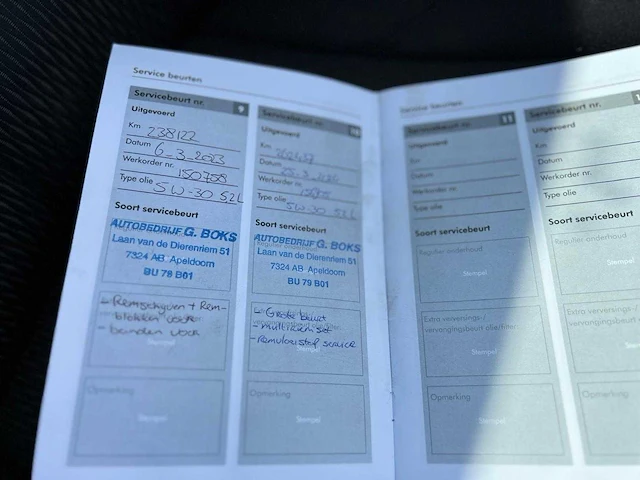 Service beurten
Servicebeurt nr. 9
Uitgevoerd
Km 238122
Datum 6-3-2023
Werkorder nr. 150758
Type olie 5W-30 5.2L
Soort servicebeurt
AUTOBEDRIJF G. BOKS
Laan van de Dierenriem 51
7324 AB Apeldoorn
BU 78 B01
- Remschijven + Rem-
blokken
- banden voor
Opmerking
Stempel
Servicebeurt nr. 10
Uitgevoerd
Km
Datum
Werkorder nr.
Type olie 5W-30 5.2L
Soort servicebeurt
AUTOBEDRIJF G. BOKS
Laan van de Dierenriem 51
7324 AB Apeldoorn
BU 79 B01
- Grote beurt
- multiriem set
- remvloeistof service
Stempel
Opmerking
Stempel
Service beurten
Servicebeurt nr. 11
Uitgevoerd
Km
Datum
Werkorder nr.
Type olie
Soort servicebeurt
Regulier onderhoud
Stempel
Extra verversings-/
vervangingsbeurt olie/filter
Stempel
Opmerking
Stempel
Servicebeurt nr.
Uitgevoerd
Km
Datum
Werkorder nr.
Type olie
Soort servicebeurt
Regulier onderhoud
Stempel
Extra verversings-/
vervangingsbeurt
Stempel
Opmerking
Stempel